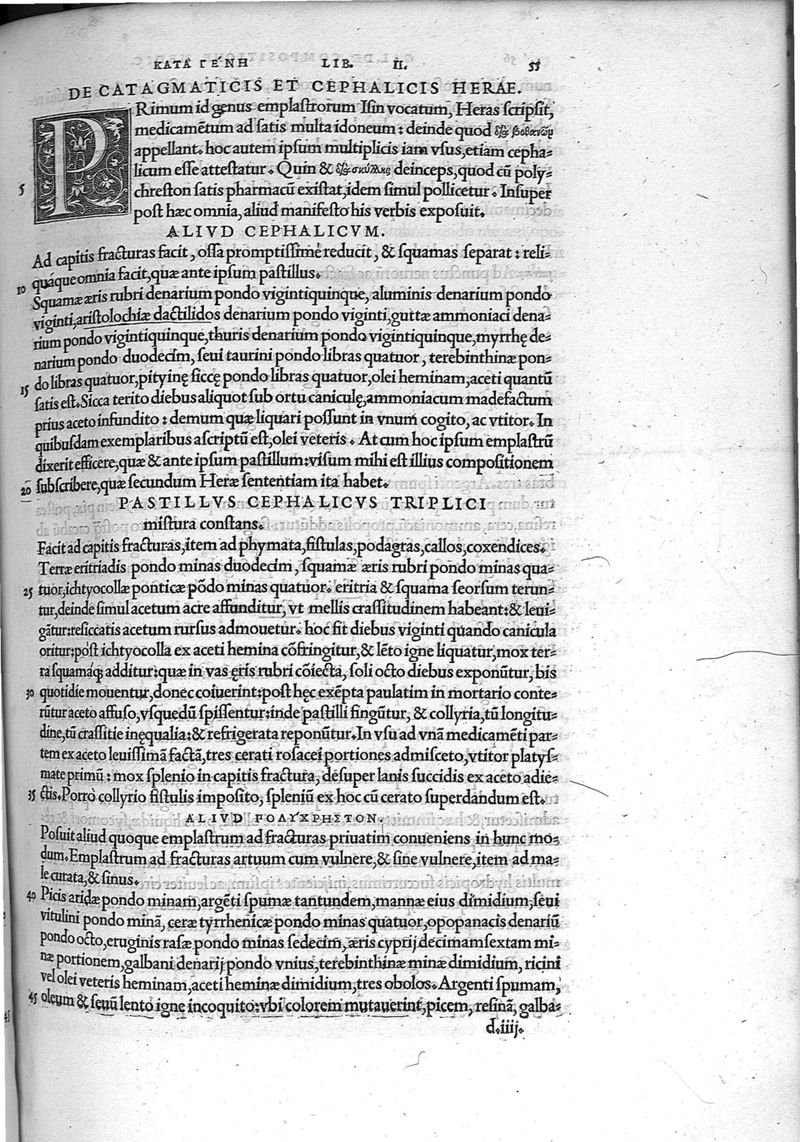 ΚΑΤΑ ΓΕ´ΝΗ LIB. II. 55
DE CATAGMATICIS ET CEPHALICIS HERAE.
PRimum id genus emplastrorum Isin vocatum, Heras scripsit,
medicamētum ad satis multa idoneum: deinde quod
appellant. hoc autem ipsum multiplicis iam vsus, etiam cepha-
5 licum esse attestatur. Quin & deinceps, quod cū poly-
chreston satis pharmacū existat, idem simul pollicetur. Insuper
post hæc omnia, aliud manifesto his verbis exposuit.
ALIVD CEPHALICVM.
Ad capitis fracturas facit, ossa promptissimè reducit, & squamas separat: reli-
10 quáque omnia facit, quæ ante ipsum pastillus.
Squamæ æris rubri denarium pondo vigintiquinque, aluminis denarium pondo
viginti, aristolochiæ dactilidos denarium pondo viginti, guttæ ammoniaci dena-
rium pondo vigintiquinque, thuris denarium pondo vigintiquinque, myrrhę de-
narium pondo duodecim, seui taurini pondo libras quatuor, terebinthinæ pon-
15 do libras quatuor, pityinę siccę pondo libras quatuor, olei heminam, aceti quantū
satis est. Sicca terito diebus aliquot sub ortu caniculę, ammoniacum madefactum
prius aceto infundito: demum quæ liquari possunt in vnum cogito, ac vtitor. In
quibusdam exemplaribus ascriptū est, olei veteris. At cum hoc ipsum emplastrū
dixerit efficere, quæ & ante ipsum pastillum: visum mihi est illius compositionem
20 subscribere, quæ secundum Heræ sententiam ita habet.
PASTILLVS CEPHALICVS TRIPLICI
mistura constans.
Facit ad capitis fracturas, item ad phymata, fistulas, podagras, callos, coxendices.
Terræ eritriadis pondo minas duodecim, squamæ æris rubri pondo minas qua-
25 tuor, ichtyocollæ ponticæ pōdo minas quatuor. eritria & squama seorsum terun-
tur, deinde simul acetum acre affunditur, vt mellis crassitudinem habeant: & leui-
gātur: resiccatis acetum rursus admouetur. hoc fit diebus viginti quando canicula
oritur: post ichtyocolla ex aceti hemina cōfringitur, & lēto igne liquatur, mox ter-
ra squamáq; additur: quæ in vas ęris rubri cōiecta, soli octo diebus exponūtur, bis
30 quotidie mouentur, donec coiuerint: post hęc exēpta paulatim in mortario conte-
rūtur aceto affuso, vsquedū spissentur: inde pastilli fingūtur, & collyria, tū longitu-
dine, tū crassitie inęqualia: & refrigerata reponūtur. In vsu ad vnā medicamēti par-
tem ex aceto leuissimā factā, tres cerati rosacei portiones admisceto, vtitor platys-
mate primū: mox splenio in capitis fractura, desuper lanis succidis ex aceto adie-
35 ctis. Porrò collyrio fistulis imposito, spleniū ex hoc cū cerato superdandum est.
ALIVD POLYCHRESTON.
Posuit aliud quoque emplastrum ad fracturas priuatim conueniens in hunc mo-
dum. Emplastrum ad fracturas artuum cum vulnere, & sine vulnere, item ad ma-
le curata, & sinus.
40 Picis aridæ pondo minam, argēti spumæ tantundem, mannæ eius dimidium, seui
vitulini pondo minā, ceræ tyrrhenicæ pondo minas quatuor, opopanacis denariū
pondo octo, eruginis rasæ pondo minas sedecim, æris cyprij decimam sextam mi-
næ portionem, galbani denarij pondo vnius, terebinthinæ minæ dimidium, ricini
vel olei veteris heminam, aceti heminæ dimidium, tres obolos. Argenti spumam,
45 oleum & seuū lento igne incoquito: vbi colorem mutauerint, picem, resinā, galba-
d.iiij.